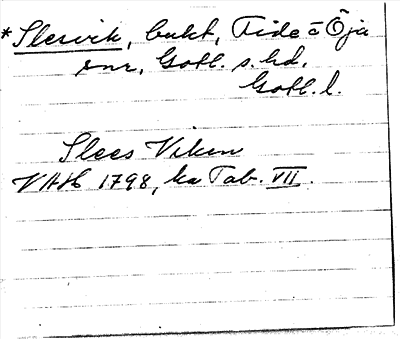 *Slesvik, bukt, Fide o Öja
snr, Gotl. s. hd.
Gotl. l.
Slees Viken
VAH 1798, ka Tab. VII.